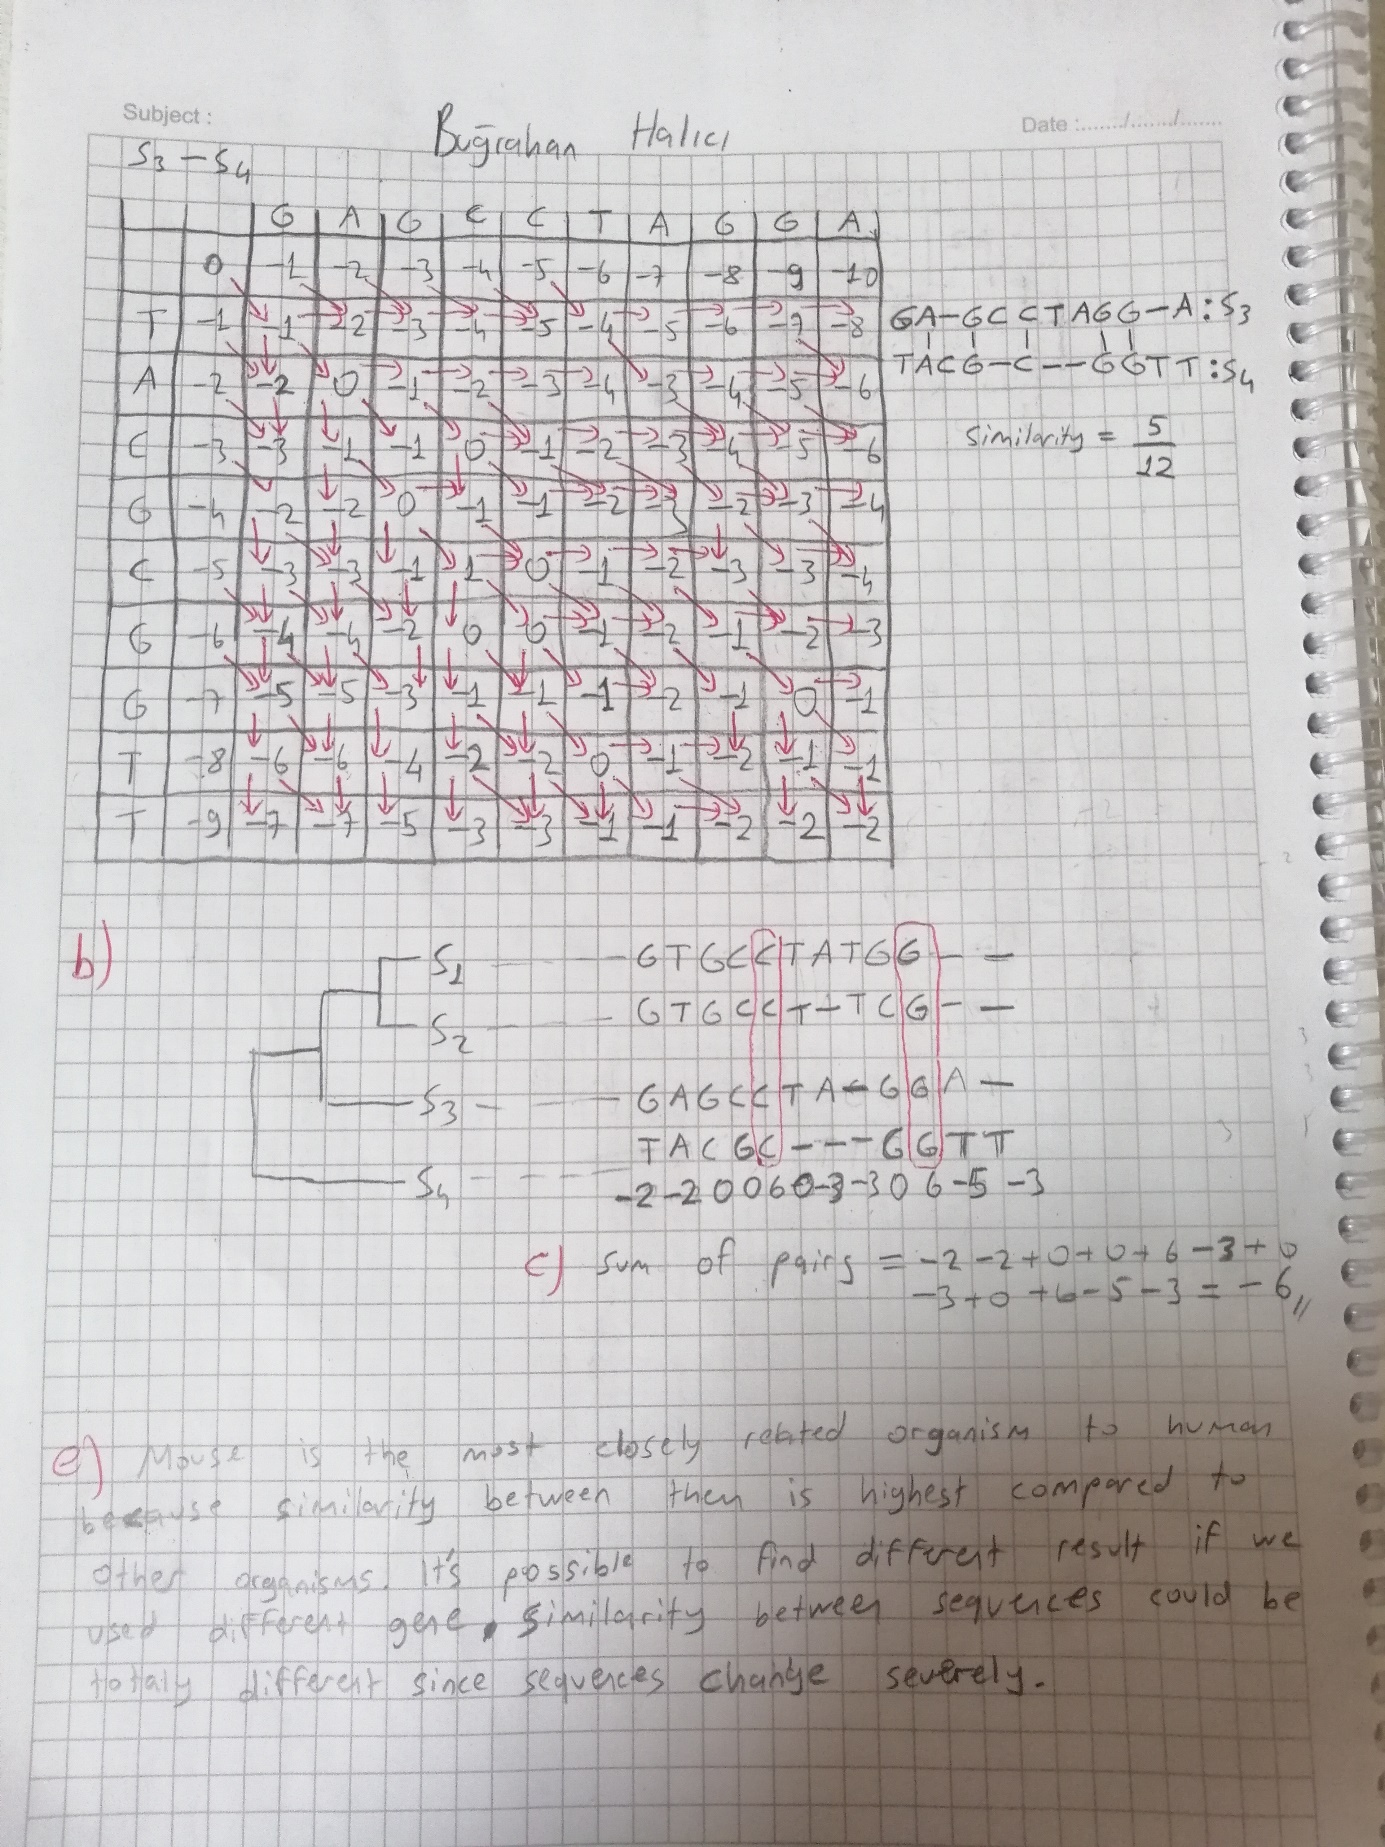 Subject :
Buğrahan Halıcı
Date :......../......../.......
S3 – S4
G A G C C T A G G A
0 -1 -2 -3 -4 -5 -6 -7 -8 -9 -10
T -1 -1 -2 -3 -4 -5 -4 -5 -6 -7 -8
A -2 -2 0 -1 -2 -3 -4 -3 -4 -5 -6
C -3 -3 -1 -1 0 -1 -2 -3 -4 -5 -6
G -4 -2 -2 0 -1 -1 -2 -3 -2 -3 -4
C -5 -3 -3 -1 1 0 -1 -2 -3 -3 -4
G -6 -4 -4 -2 0 0 -1 -2 -1 -2 -3
G -7 -5 -5 -3 -1 -1 -1 -2 -1 0 -1
T -8 -6 -6 -4 -2 -2 0 -1 -2 -1 -1
T -9 -7 -7 -5 -3 -3 -1 -1 -2 -2 -2
GA-GCCTAGG-A:S3
TACG-C--GGTT:S4
Similarity = 5/12
b)
S1 GTGCCTATGG--
S2 GTGCCT-TCG--
S3 GAGCCTA-GGA-
S4 TACGC---GGTT
-2 -2 0 0 6 0 -3 -3 0 6 -5 -3
c) Sum of pairs = -2 -2 +0 +0 +6 -3 +0
-3 +0 +6 -5 -3 = -6,,
e) Mouse is the most closely related organism to human
because similarity between then is highest compared to
other organisms. It's possible to find different result if we
used different gene. Similarity between sequences could be
totaly different since sequences change severely.